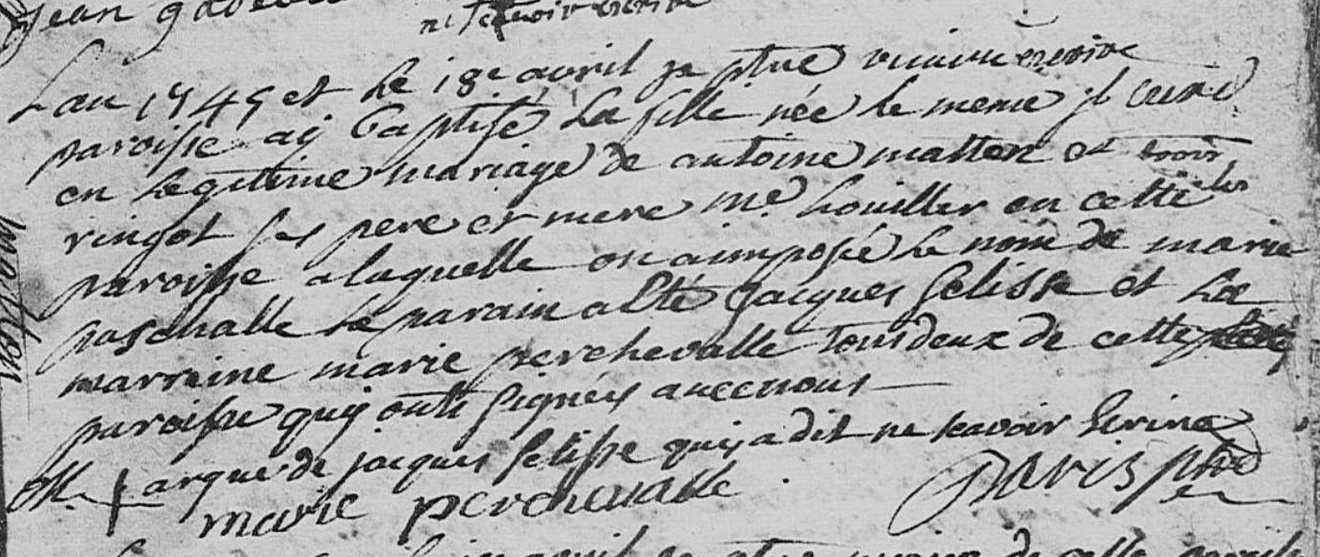 jean
ne scavoir ecrire
Lan 1749 et le 18e avril je ptre
paroisse aÿ baptisé la fille née le meme jr
en legitime mariage de antoine matten et
ringot ses pere et mere md houiller en cette
paroisse a laquelle on a imposée le nom de marie
paschalle le parain a été jacques felisse et la
marraine marie perchevalle tous deux de cette
paroisse quÿ ont signées avec nous
M arque de jacques felisse quÿ a dit ne scavoir Ecrire
marie perchevalle PARIS ptre
avril